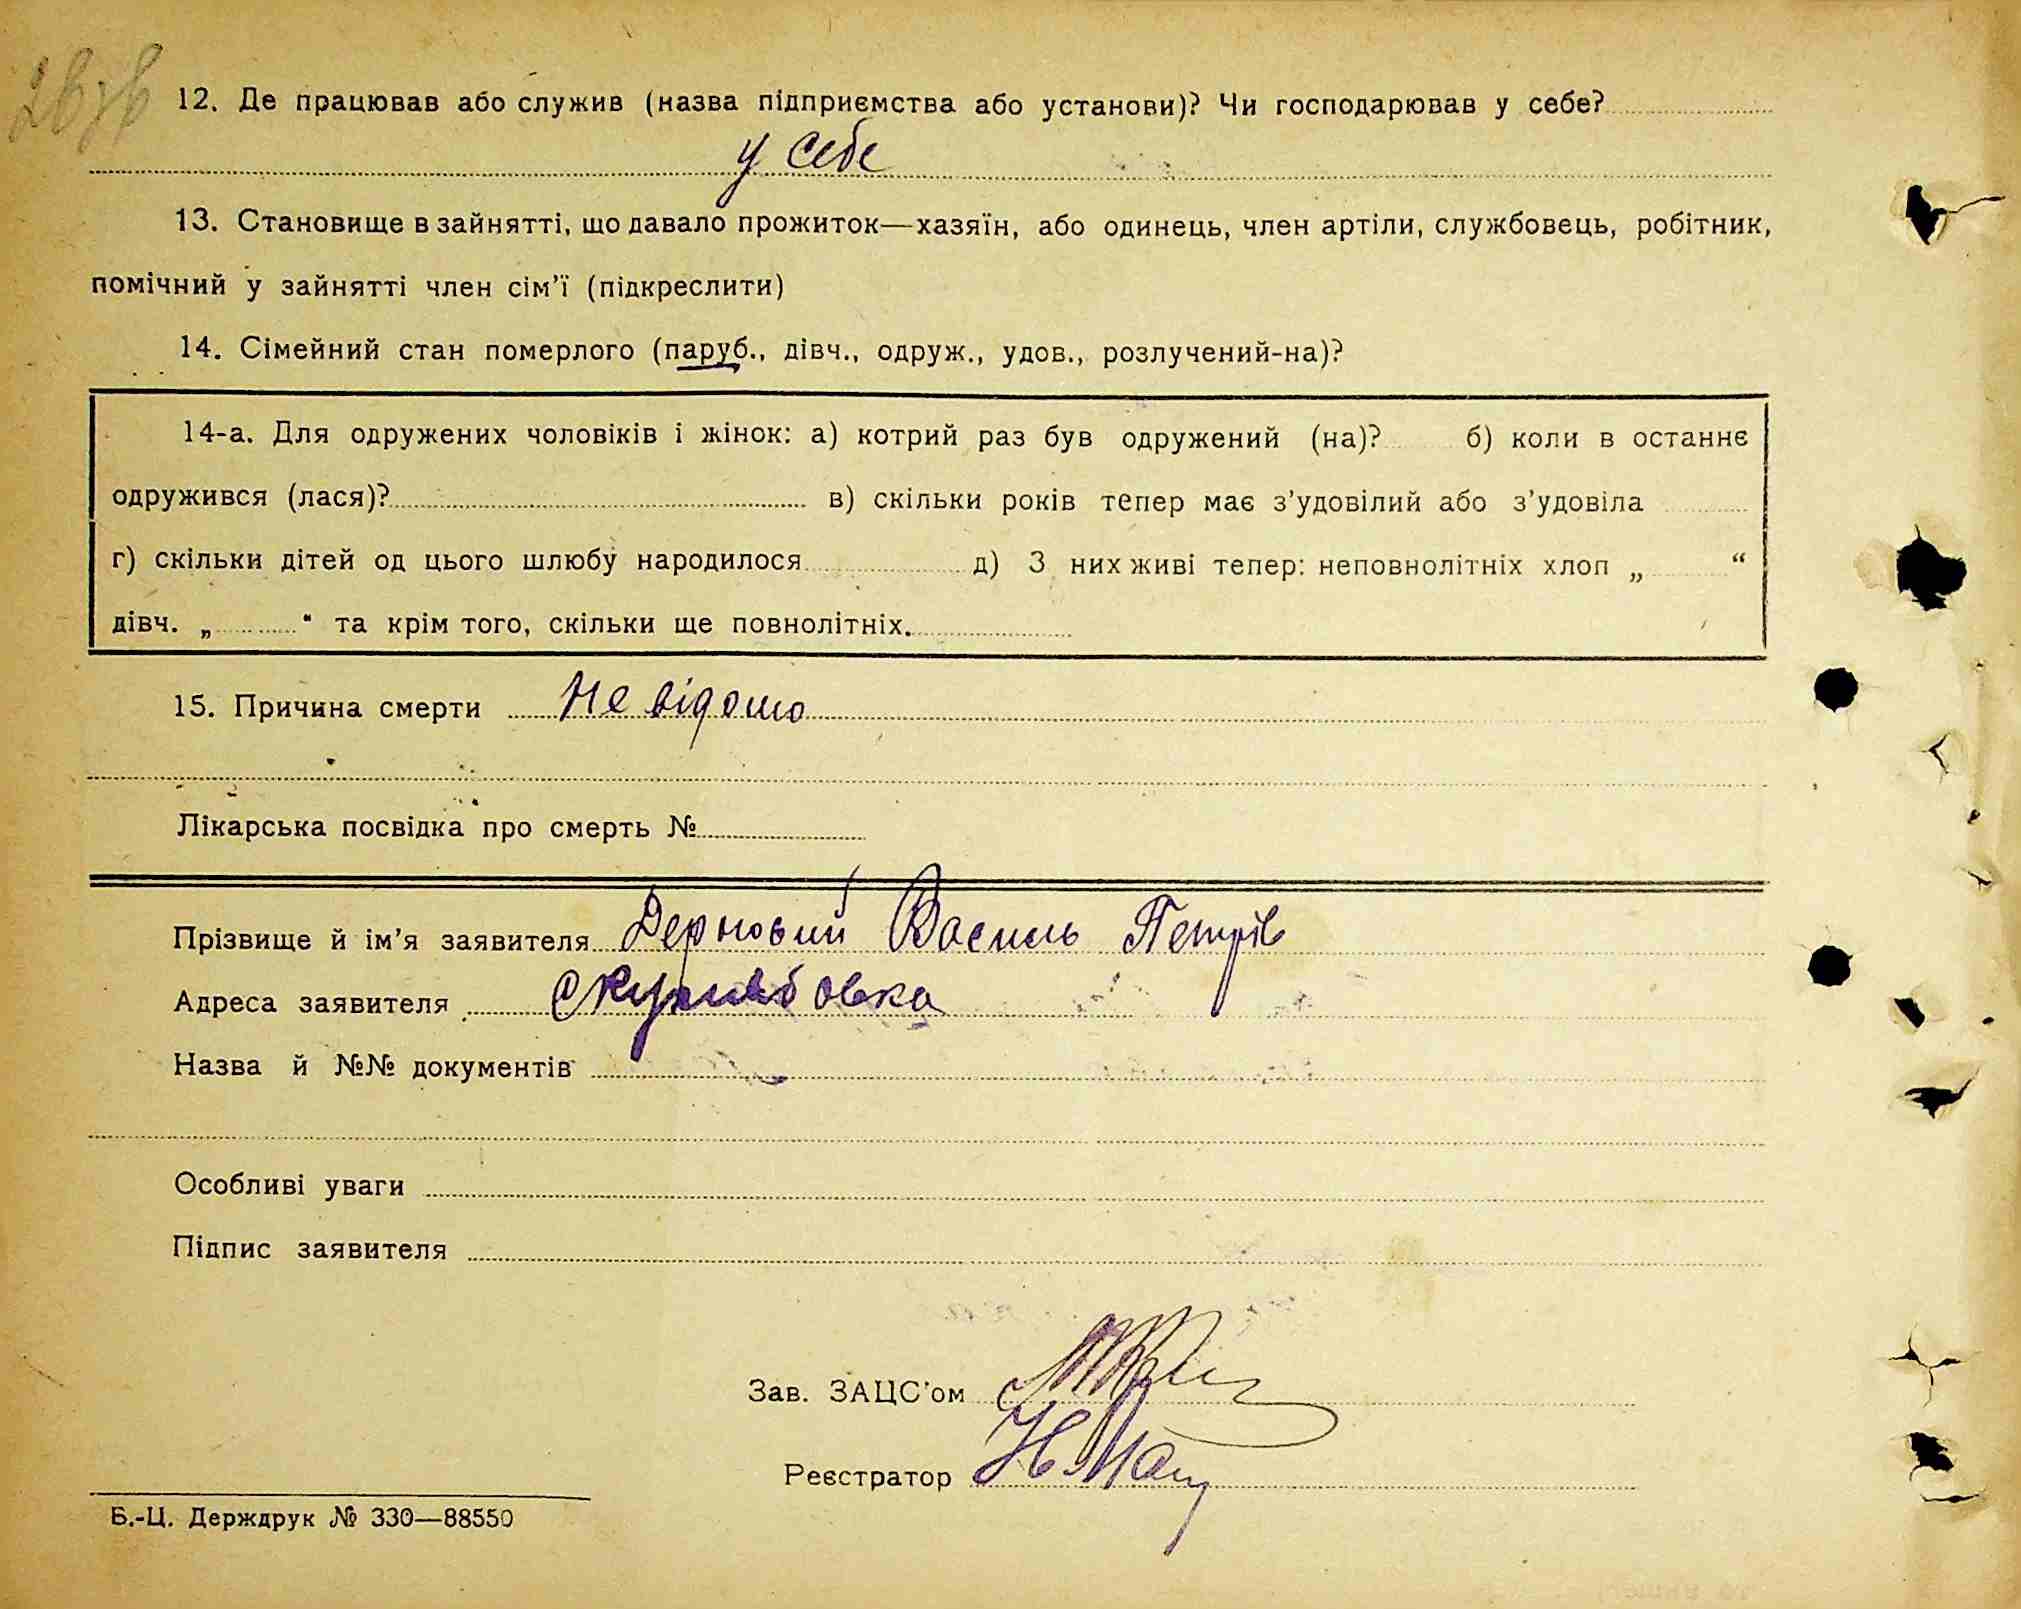 12. Де працював або служив (назва підприємства або установи)? Чи господарював у себе?
у себе
13. Становище в зайнятті, що давало прожиток—хазяїн, або одинець, член артіли, службовець, робітник,
помічний у зайнятті член сім'ї (підкреслити)
14. Сімейний стан померлого (паруб., дівч., одруж., удов., розлучений-на)?
14-а. Для одружених чоловіків і жінок: а) котрий раз був одружений (на)? б) коли в останнє
одружився (лася)? в) скільки років тепер має з'удовілий або з'удовіла
г) скільки дітей од цього шлюбу народилося д) З них живі тепер: неповнолітніх хлоп „ “
дівч. „ “ та крім того, скільки ще повнолітніх.
15. Причина смерти Не відомо
Лікарська посвідка про смерть №
Прізвище й ім'я заявителя Дерновий Василь Петрів
Адреса заявителя
Назва й №№ документів
Особливі уваги
Підпис заявителя
Зав. ЗАЦС'ом
Реєстратор
Б.-Ц. Держдрук № 330—88550